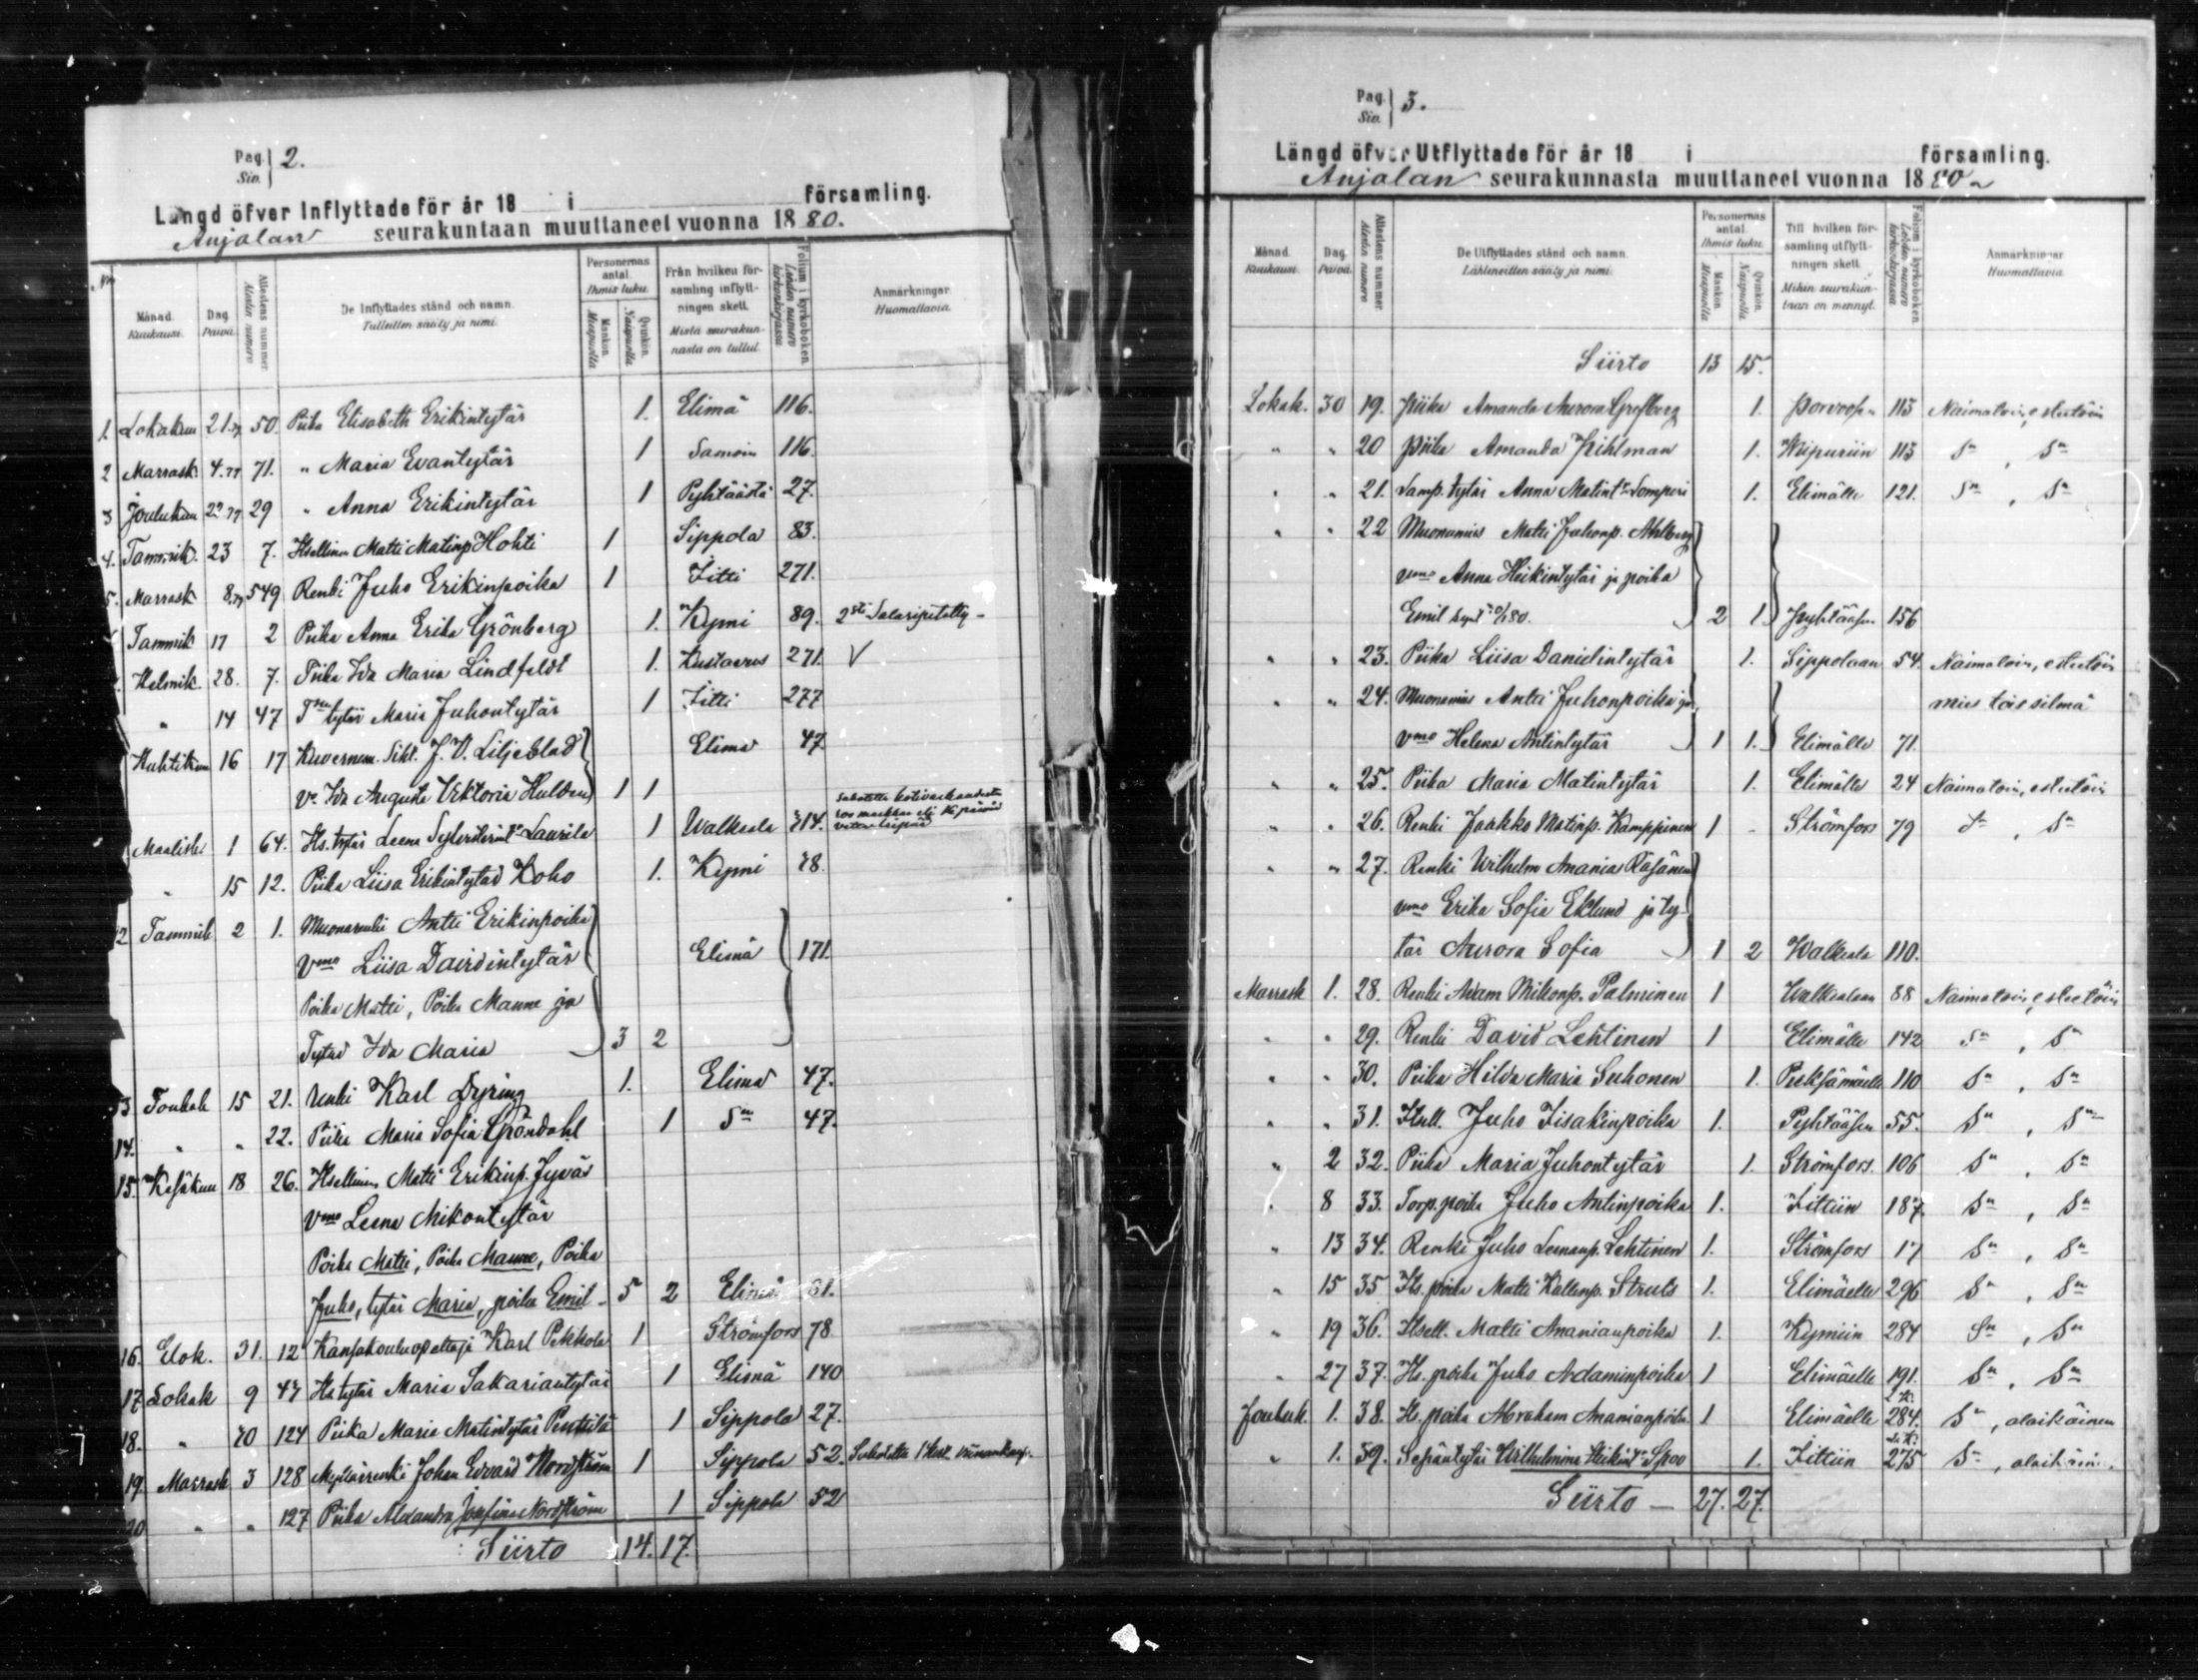 Pag. Siv. 2.
Längd öfver Inflyttade för år 18 i församling.
Anjalan seurakuntaan muuttaneet vuonna 1880.
Nro
Månad. Kuukausi.
Dag. Päivä.
Attestens nummer Alestin numero
De Inflyttades stånd och namn. Tulleitten sääty ja nimi.
Personernas antal. Ihmis luku.
Mankön. Miespuolia
Qvinkön. Naispuolia
Från hvilken församling inflyttningen skett. Mistä seurakunnasta on tullut.
Folium i kyrkoboken. Lehden numero kirkonkirjassa
Anmärkningar. Huomattavia.
1. Lokakuu 21.79 50. Piika Elisabeth Erikintytär 1. Elimä 116.
2 Marrask. 4.79 71. " Maria Evantytär 1 Samoin 116.
3 Joulukuu 22.79 29 " Anna Erikintytär 1 Pyhtäästä 27.
4. Tammik. 23 7. Itsellinen Matti Matinp Hohti 1 Sippola 83.
5. Marrask 8.79 549 Renki Juho Erikinpoika 1 Iitti 271.
Tammik 17 2 Piika Anna Erika Grönberg 1. Kymi 89. 2sti Salavuotettu
Helmik. 28. 7. Piika Ida Maria Lindfeldt 1. Kustavus 271. V
" 14 47 Tn tytär Maria Juhontytär 1 Iitti 277
Huhtikuu 16 17 Kuvernem. Siht. J. V. Liljeblad Elimä 47
Vo Ida Augusta Viktoria Hulden 1 1
Maalisk. 1 64. Its. tytär Leena Laurila 1 Walkeala 214.
" 15 12. Piika Liisa Erikintytär Koho 1. Kymi 78.
12 Tammik 2 1. Muonarenki Antti Erikinpoika
Vmo Liisa Davidintytär Elimä 171.
Poika Matti, Poika Manne ja
Tytär Ida Maria 3 2
13 Toukok 15 21. Renki Karl Dyring 1. Elimä 47.
14. " " 22. Piika Maria Sofia Gröndahl 1 Sn 47.
15. Kesäkuu 18 26. Itsellinen Matti Erikinp. Jyväs
Vmo Leena Mikontytär
Poika Matti, Poika Manne, Poika
Juho, tytär Maria, poika Emil 5 2 Elimä 61.
16. Elok. 31. 12 Kansakouluopettaja Karl Pekkola 1 Strömfors 78
17 Lokak 9 47 Its tytär Maria Sakariantytär 1 Elimä 140
18. " 70 124 Piika Maria Matintytär Penttilä 1 Sippola 27.
19. Marrask 3 128 Myllärirenki Johan Edvard Nordström 1 Sippola 52
20 " " 127 Piika Alexandra Josefina Nordström 1 Sippola 52
Siirto 14. 17.
Pag. Siv. 3.
Längd öfver Utflyttade för år 18 i församling.
Anjalan seurakunnasta muuttaneet vuonna 1880
Månad. Kuukausi.
Dag. Päivä.
Attestens nummer Alestin numero
De Utflyttades stånd och namn. Lähteneitten sääty ja nimi.
Personernas antal. Ihmis luku.
Mankön. Miespuolia
Qvinkön. Naispuolia.
Till hvilken församling utflyttningen skett. Mihin seurakuntaan on mennyt.
Folium i kyrkoboken Lehden numero kirkonkirjassa
Anmärkningar. Huomattavia.
Siirto 13 15.
Lokak. 30 19. Piika Amanda Aurora Grefberg 1. Porvoosen 113 Naimatoin, esteetöin
" " 20 Piika Amanda Pihlman 1. Wiipuriin 113 Sn , Sn
" " 21. Lamp. tytär Anna Matint. Sompori 1. Elimälle 121. Sn , Sn
" " 22 Muonamies Matti Juhonp. Ahlberg
vmo Anna Heikintytär ja poika
Emil 2 1 Pyhtääsen 156
" " 23. Piika Liisa Danielintytär 1. Sippolaan 54. Naimatoin, esteetöin
" " 24. Muonamies Antti Juhonpoika ja mies tois silmä
vmo Helena Antintytär 1 1. Elimälle 71.
" " 25. Piika Maria Matintytär 1. Elimälle 24 Naimatoin, esteetöin
" " 26. Renki Jaakko Matinp. Kamppinen 1 - Strömfors 79 Sn , Sn
" " 27. Renki Wilhelm Ananias Räsänen
vmo Erika Sofia Eklund ja ty-
tär Aurora Sofia 1 2 Walkeala 110.
Marrask 1. 28. Renki Adam Mikonp. Palminen 1 Walkealaan 88 Naimatoin, esteetöin
" " 29. Renki David Lehtinen 1 Elimälle 142 Sn , Sn
" " 30. Piika Hilda Maria Suhonen 1. Pieksämäelle 110 Sn , Sn
" " 31. Itsell. Juho Iisakinpoika 1. Pyhtääsen 55. Sn , Sn
" 2 32. Piika Maria Juhontytär 1. Strömfors. 106 Sn , Sn
" 8 33. Torp. poika Juho Antinpoika 1. Iittiin 187. Sn , Sn
" 13 34. Renki Juho Leenanp. Lehtinen 1. Strömfors 17 Sn , Sn
" 15 35 Its. poika Matti Kallenp. Struts 1. Elimäelle 296 Sn , Sn
" 19 36. Itsell. Matti Ananianpoika 1. Kymiin 284 Sn , Sn
" 27 37. Its. poika Juho Adaminpoika 1 Elimäelle 191. Sn , Sn
Jouluk. 1. 38. Its. poika Abraham Ananianpoika 1 Elimäelle 284. Sn , alaikäinen
" 1. 39. Sepäntytär Wilhelmina Heikint. Spoo 1. Iittiin 275 Sn , alaikäinen
Siirto — 27. 27.